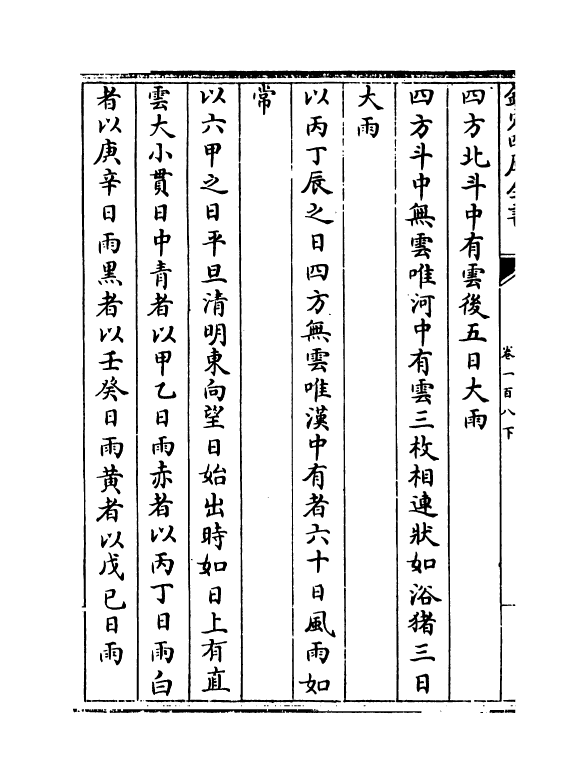 欽定四庫全書
卷一百八下
四方北斗中有雲後五日大雨
四方斗中無雲唯河中有雲三枚相連狀如浴猪三日
大雨
以丙丁辰之日四方無雲唯漢中有者六十日風雨如
常
以六甲之日平旦清明東向望日始出時如日上有直
雲大小貫日中青者以甲乙日雨赤者以丙丁日雨白
者以庚辛日雨黑者以壬癸日雨黄者以戊已日雨